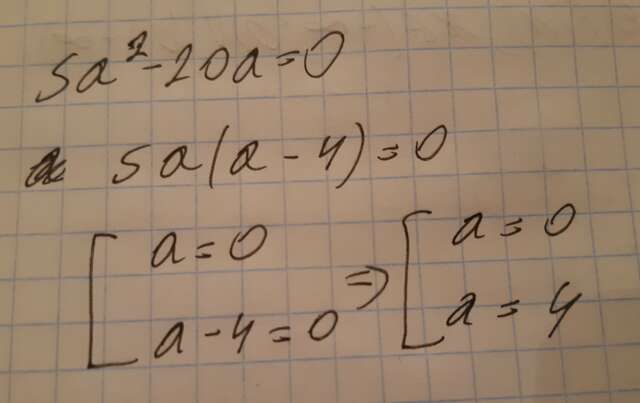 5a² - 20a = 0
5a(a - 4) = 0
[ a = 0 ⇒ [ a = 0
a - 4 = 0 a = 4